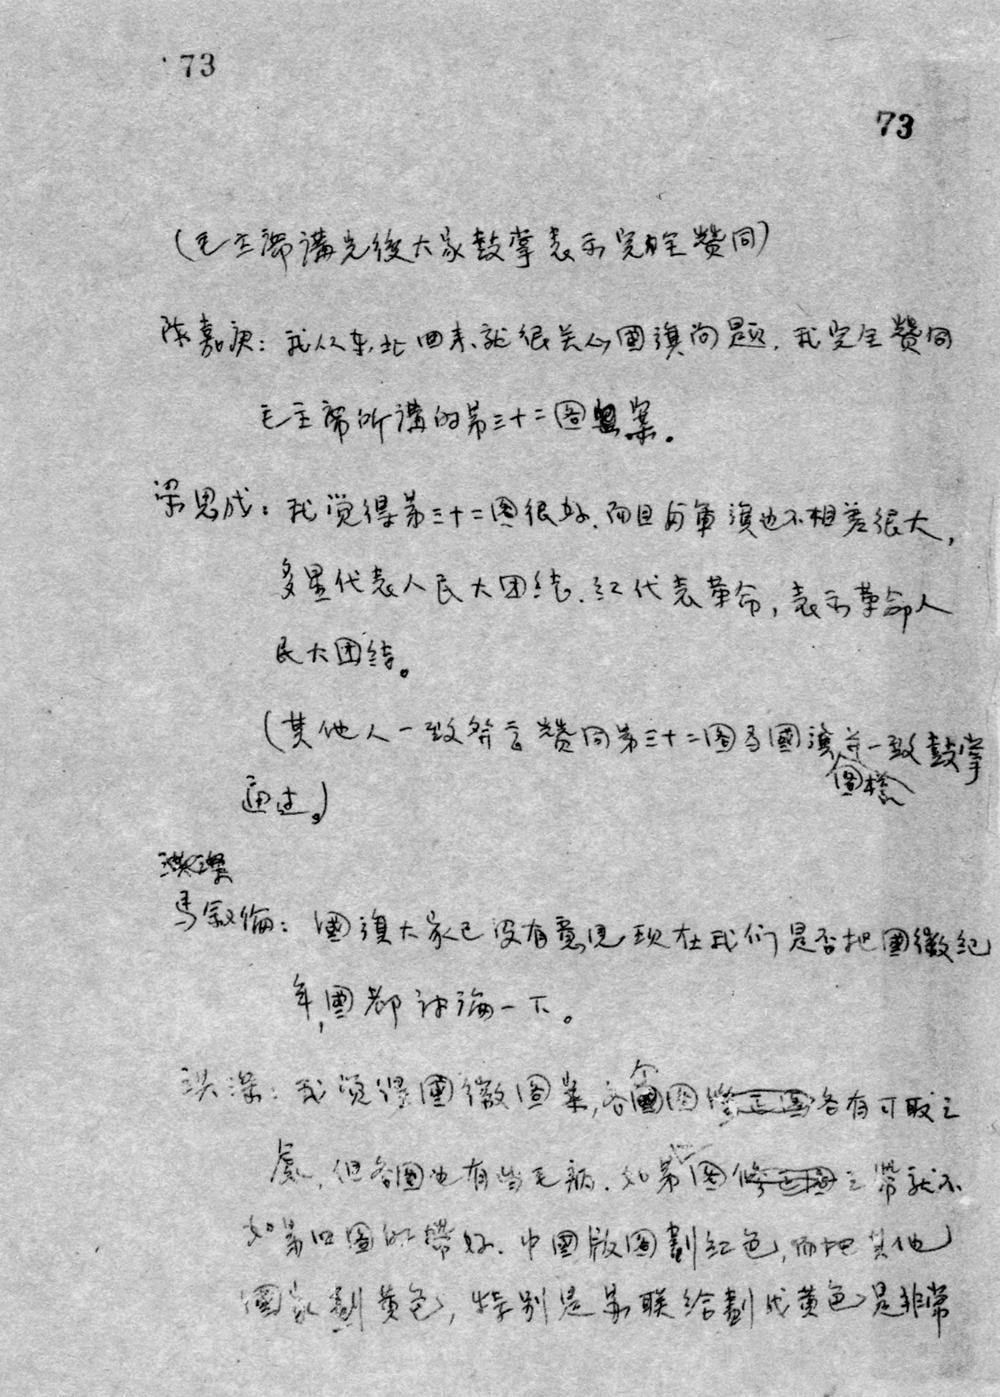 73
73
(毛主席講完後大家鼓掌表示完全贊同)
陈嘉庚：我从东北回来就很关心國旗问题，我完全贊同
毛主席所講的第三十二图案。
梁思成：我觉得第三十二图很好，而且与軍旗也不相差很大，
多星代表人民大团结，红代表革命，表示革命人
民大团结。
(其他人一致發言贊同第三十二图為國旗图样并一致鼓掌
通过。)
洪深
馬叙倫：國旗大家已没有意見现在我们是否把國徽纪
年，國都讨論一下。
洪深：我觉得國徽图案，各图各有可取之
處，但各图也有些毛病，如第图之带就不
如第四图的带好，中國版图劃红色，而把其他
國家劃黄色，特别是苏联给劃成黄色是非常